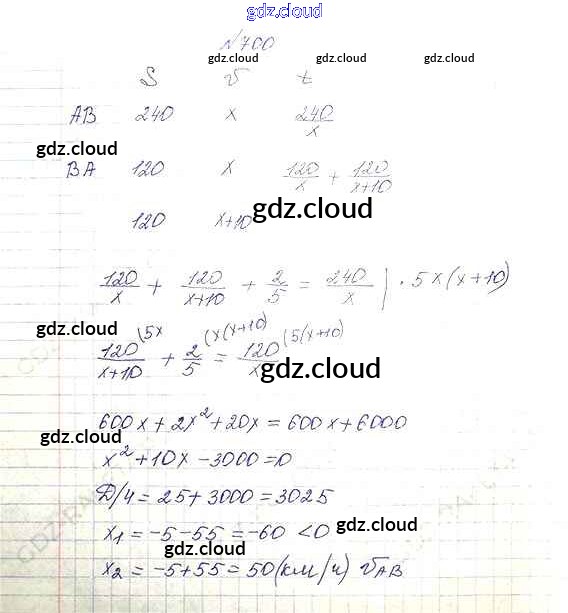 gdz.cloud
№700
gdz.cloud gdz.cloud gdz.cloud
S v t
AB 240 x 240/x
gdz.cloud
BA 120 x 120/x + 120/(x+10)
120 x+10
gdz.cloud
120/x + 120/(x+10) + 2/5 = 240/x | · 5x(x+10)
gdz.cloud
120/(x+10) (5x + 2/5 (x(x+10) = 120/x (5(x+10)
gdz.cloud
600x + 2x² + 20x = 600x + 6000
gdz.cloud
x² + 10x - 3000 = 0
D/4 = 25 + 3000 = 3025
x₁ = -5 - 55 = -60 < 0 gdz.cloud
gdz.cloud
x₂ = -5 + 55 = 50 (км/ч) v AB